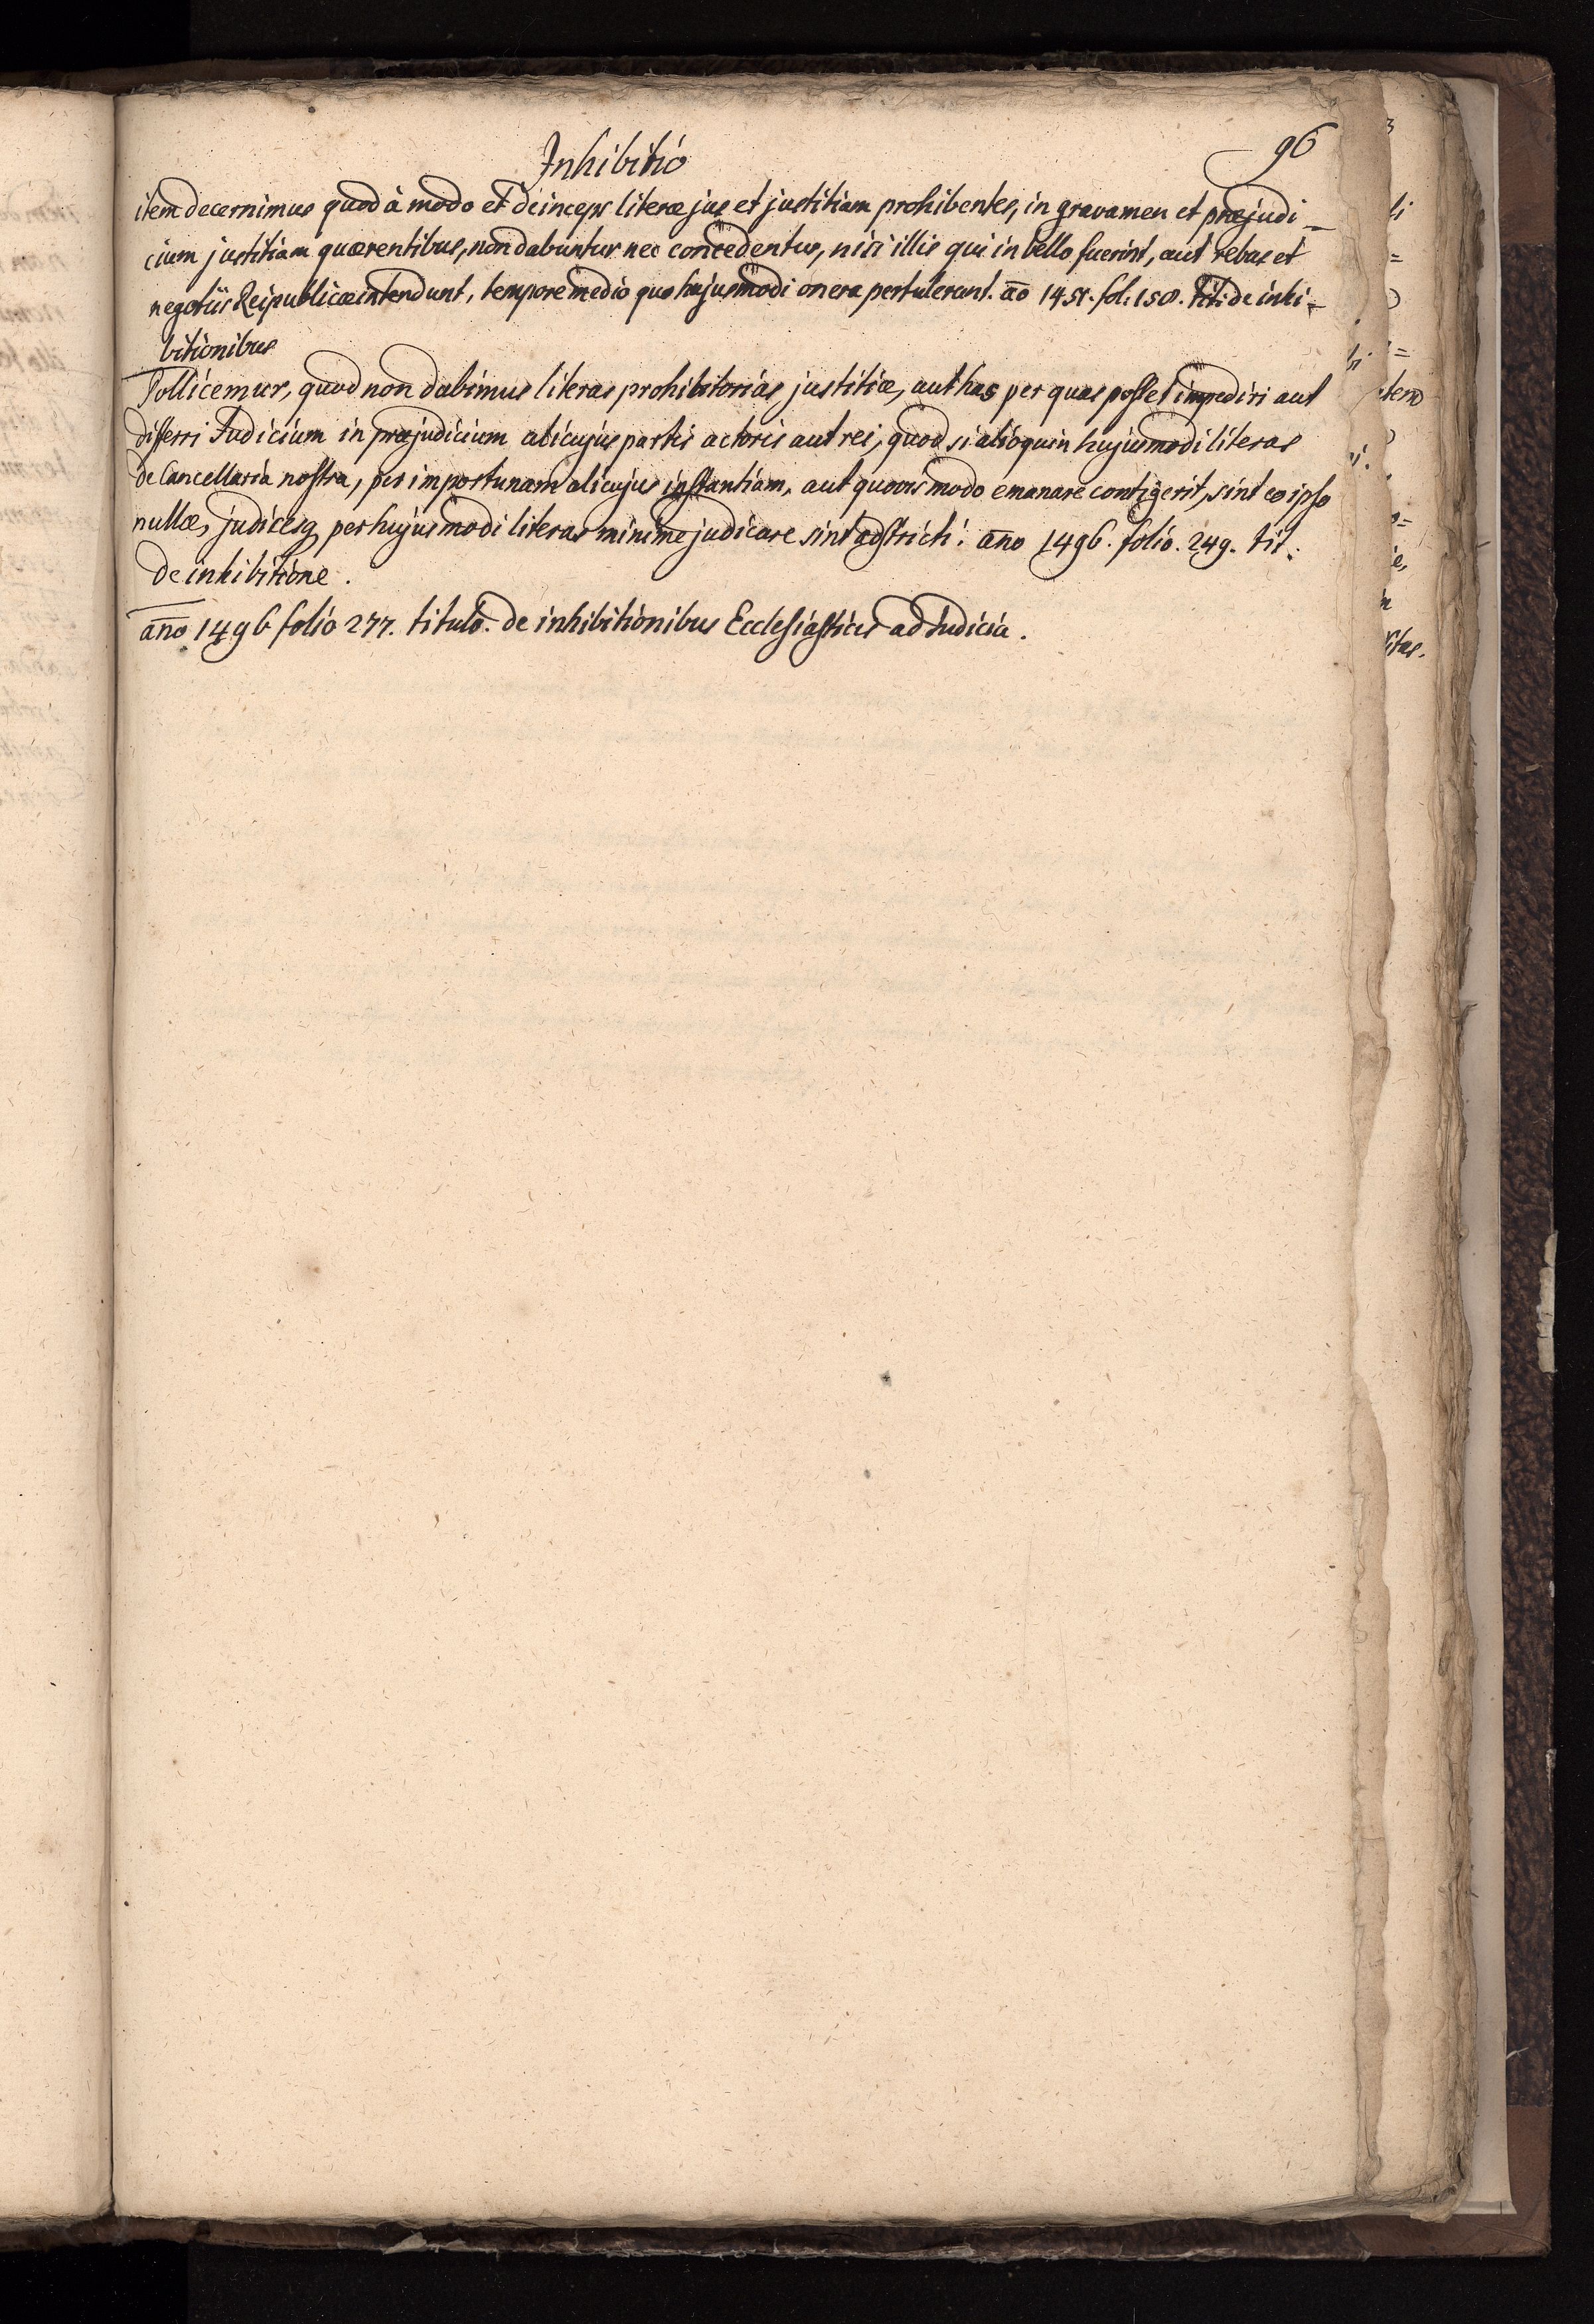 96
Inhibitio
item decernimus quod à modo et deinceps literæ jus et justitiam prohibentes, in gravamen et præjudi-
cium justitiam quærentibus, non dabuntur nec concedentur, nisi illis qui in bello fuerint, aut rebus et
negotiis Reipublicæ intendunt, tempore medio quo hujusmodi onera pertulerunt. ao 1451. fol: 158. tit: de inhi-
bitionibus
Pollicemur, quod non dabimus literas prohibitorias justitiæ, aut has per quas posset impediri aut
differri Judicium in præjudicium alicujus partis actoris aut rei, quod si alioquin hujusmodi literas
de Cancellaria nostra, per importunam alicujus instantiam, aut quovis modo emanare contigerit, sint eo ipso
nullæ, judicesq per hujusmodi literas minime judicare sint adstricti: ano 1496. folio. 249. tit:
de inhibitione.
ano 1496 folio 277. titulo. de inhibitionibus Ecclesiasticis ad Judicia.